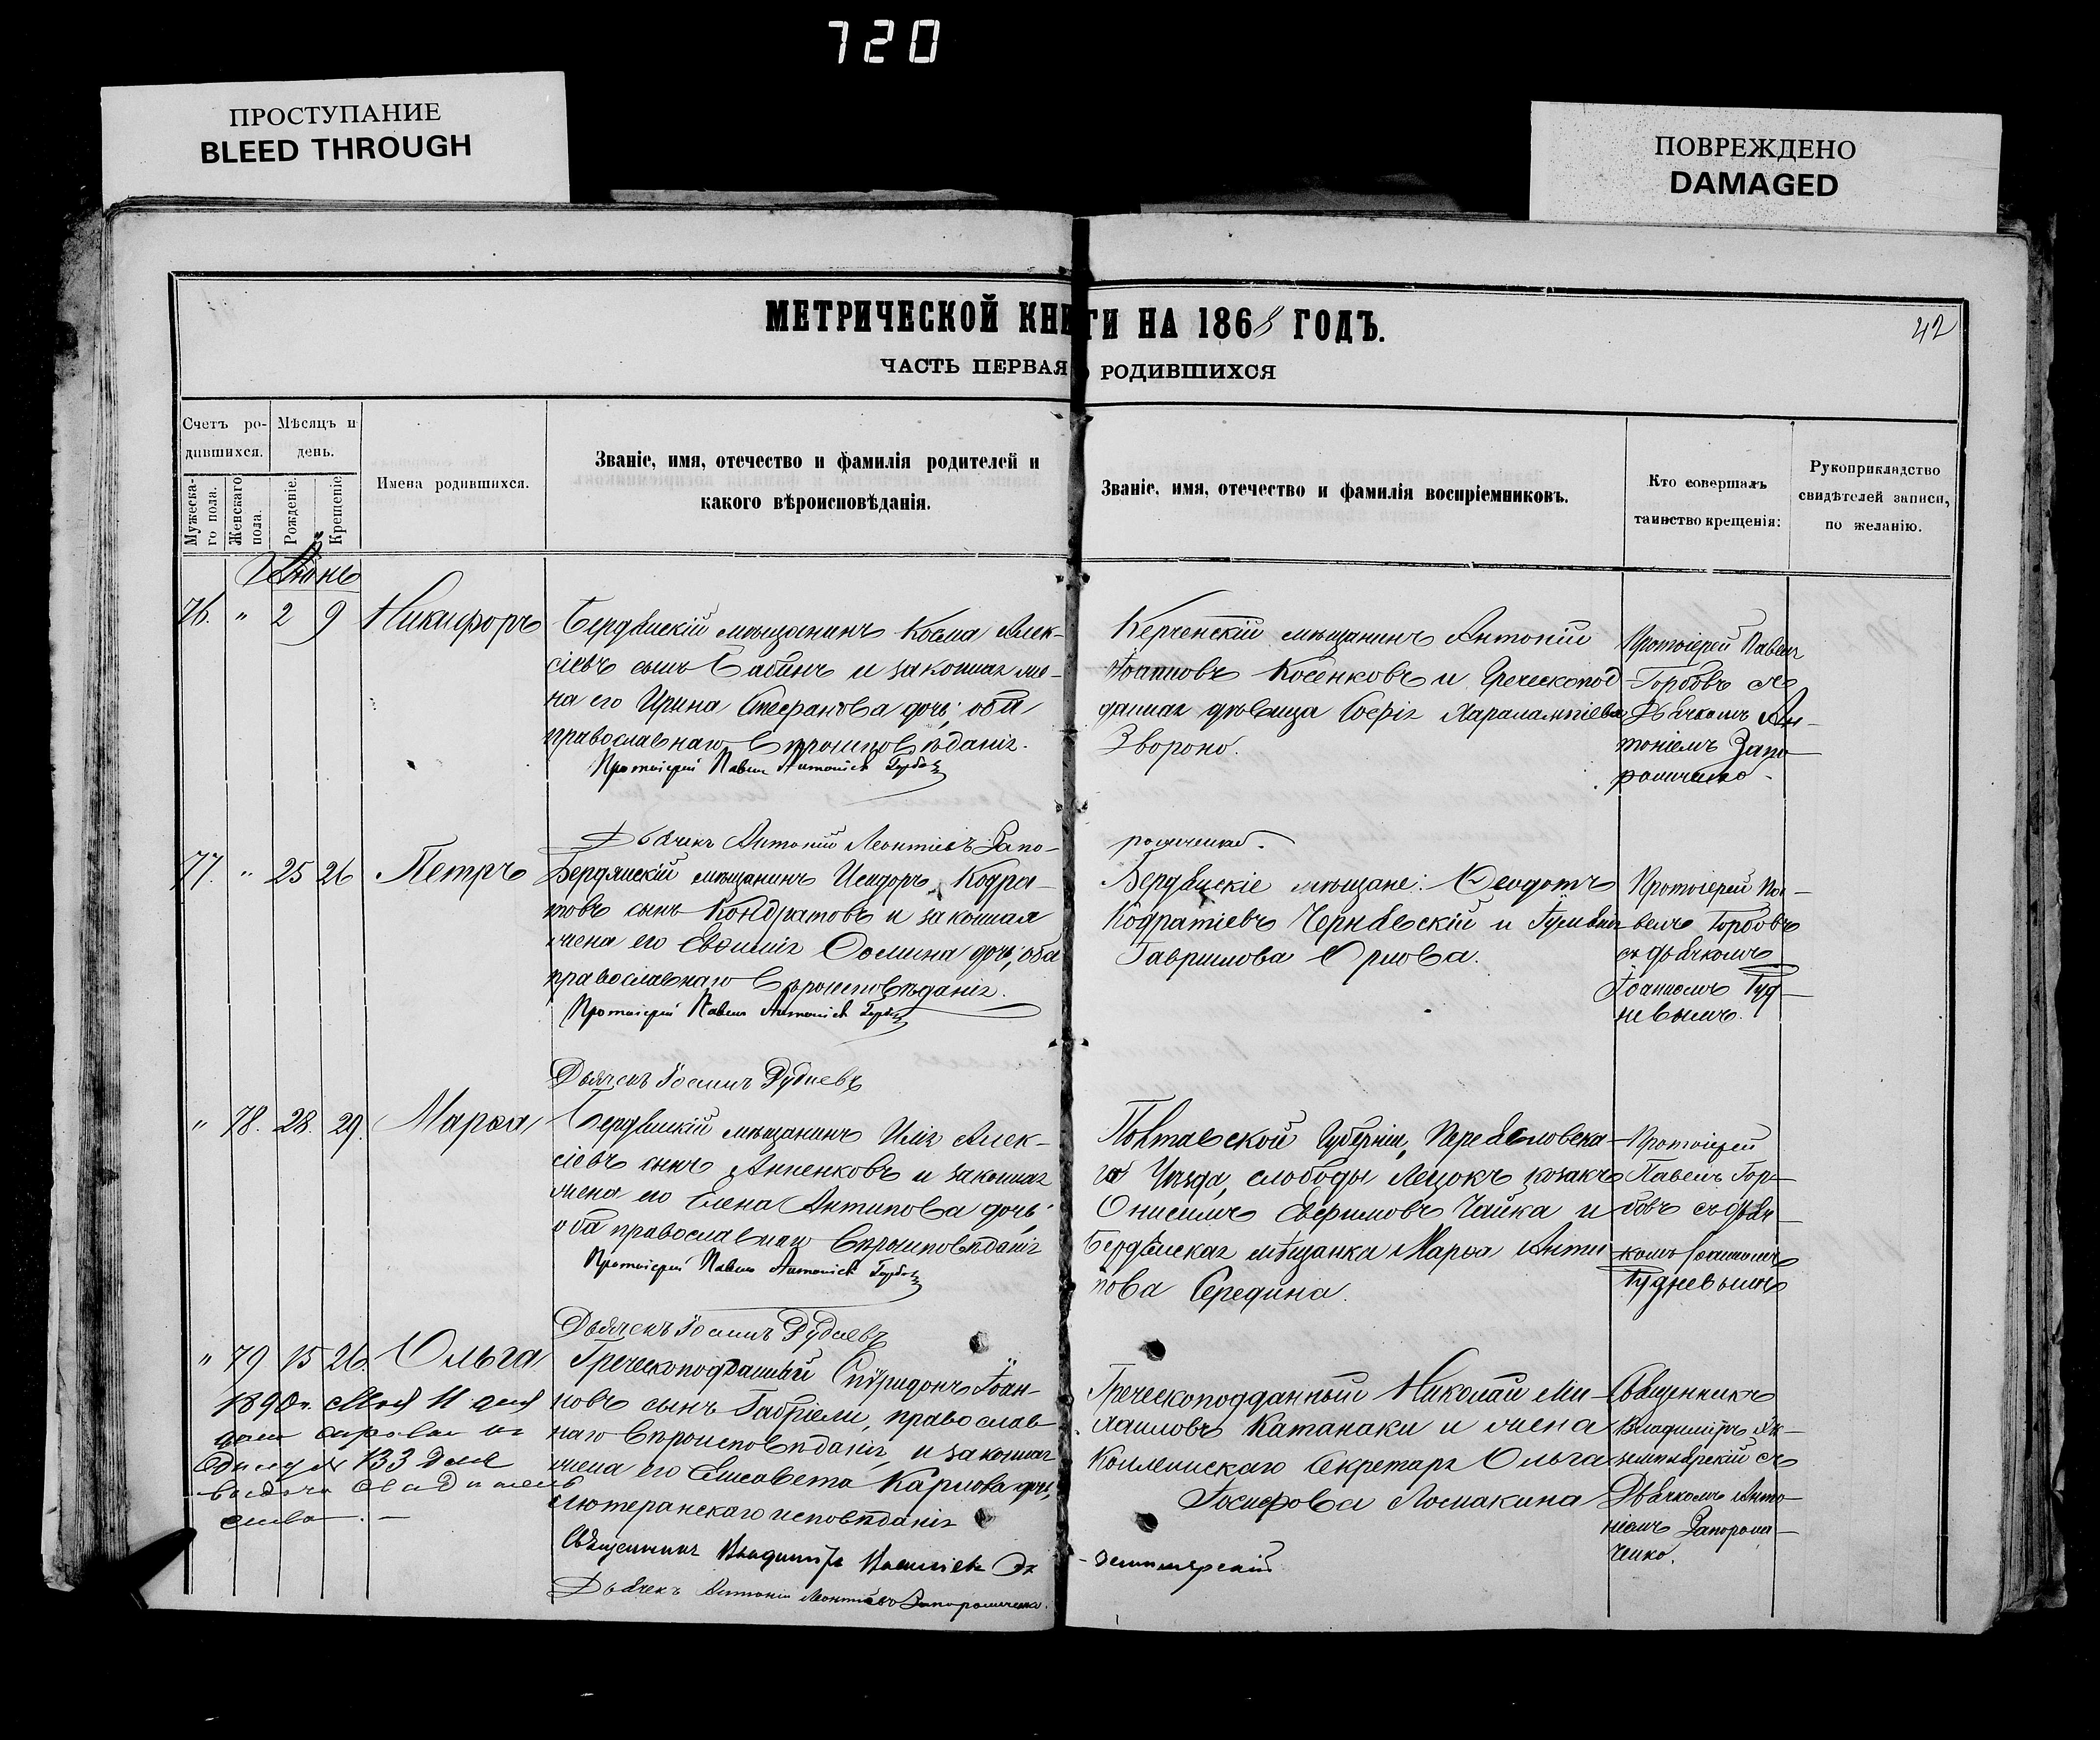 720
ПРОСТУПАНИЕ
BLEED THROUGH
ПОВРЕЖДЕНО
DAMAGED
МЕТРИЧЕСКОЙ КНИГИ НА 1868 ГОДЪ.
42
ЧАСТЬ ПЕРВАЯ О РОДИВШИХСЯ
Счетъ ро-
дившихся.
Мужеска-
го пола.
Женскаго
пола.
Мѣсяцъ и
день.
Рожденіе.
Крещеніе.
Имена родившихся.
Званіе, имя, отечество и фамилія родителей и
какого вѣроисповѣданія.
Званіе, имя, отечество и фамилія воспріемниковъ.
Кто совершалъ
таинство крещенія:
Рукоприкладство
свидѣтелей записи,
по желанію.
Іюнь
76. " 2 9 Никифоръ
Бердянскій мѣщанинъ Косма Алек-
сіевъ сынъ Бабинъ и законная же-
на его Ирина Стефанова дочь; оба
православнаго вѣроисповѣданія.
Протоіерей Павелъ Антоніевъ Горбовъ
Дьячекъ Антоній Леонтіевъ Запо-
Керченскій мѣщанинъ Антоній
Іоанновъ Косенковъ и Греческопод-
данная дѣвица Софія Харалампіева
Звороно.
рожченко.
Протоіерей Павелъ
Горбовъ съ
Дьячкомъ Ан-
тоніемъ Запо-
рожченко.
77. " 25 26 Петръ
Бердянскій мѣщанинъ Исидоръ Кодра-
товъ сынъ Кондратовъ и законная
жена его Евфимія Фомина дочь; оба
православнаго вѣроисповѣданія.
Протоіерей Павелъ Антоніевъ Горбовъ
Дьячекъ Іоаннъ Рудневъ
Бердянскіе мѣщане: Феодотъ
Кодратіевъ Чернявскій и
Гаврилова Орлова.
Протоіерей Па-
велъ Горбовъ
съ дьячкомъ
Іоанномъ Руд-
невымъ.
" 78. 28. 29. Марѳа
Бердянскій мѣщанинъ Илія Алек-
сіевъ сынъ Анненковъ и законная
жена его Елена Антипова дочь;
оба православнаго вѣроисповѣданія
Протоіерей Павелъ Антоніевъ Горбовъ
Дьячекъ Іоаннъ Рудневъ
Полтавской Губерніи, Переяславска-
го Уѣзда, слободы козакъ
Онисимъ Евфимовъ Чайка и
Бердянская мѣщанка Марѳа Анти-
пова Середина.
Протоіерей
Павелъ Гор-
бовъ съ дья-
комъ Іоанномъ
Рудневымъ
" 79 15 26. Ольга
1890г. Мая 11 дня
133 дано
Греческоподданный Спѵридонъ Іоан-
новъ сынъ Габріели, православ-
наго вѣроисповѣданія, и законная
жена его Елисавета Карлова дочь,
лютеранскаго исповѣданія
Священникъ Владиміръ Василіевъ Эк-
земплярскій
Дьячекъ Антоній Леонтіевъ Запорожченко.
Греческоподданный Николай Ми-
хаиловъ Катанаки и жена
Коллежскаго Секретаря Ольга
Іосифова Ломакина
Священникъ
Владиміръ Эк-
земплярскій съ
Дьячкомъ Анто-
ніемъ Запорож-
ченко.